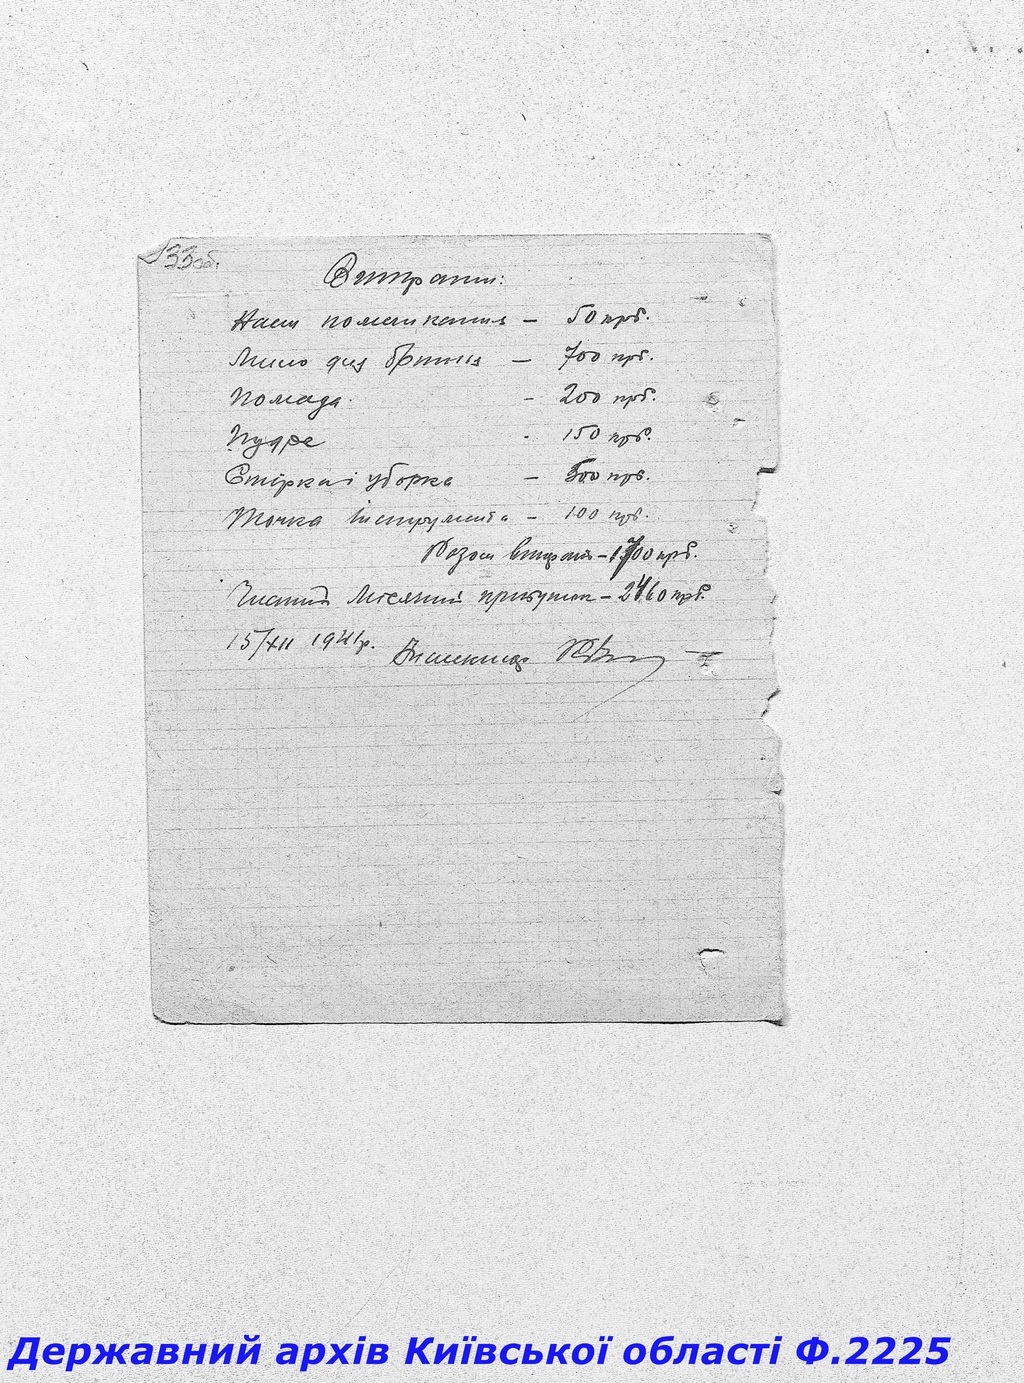 33об.
Витрати:
Наєм помешкання – 50 крб.
Мило для бриття – 700 крб.
Помада – 200 крб.
Пудра - 150 крб.
Стірка і уборка – 500 крб.
Точка інструмента – 100 крб.
Разом витрат – 1700 крб.
Чистий місячний прибуток – 2460 крб.
15/XII 1941р.
Державний архів Київської області Ф.2225